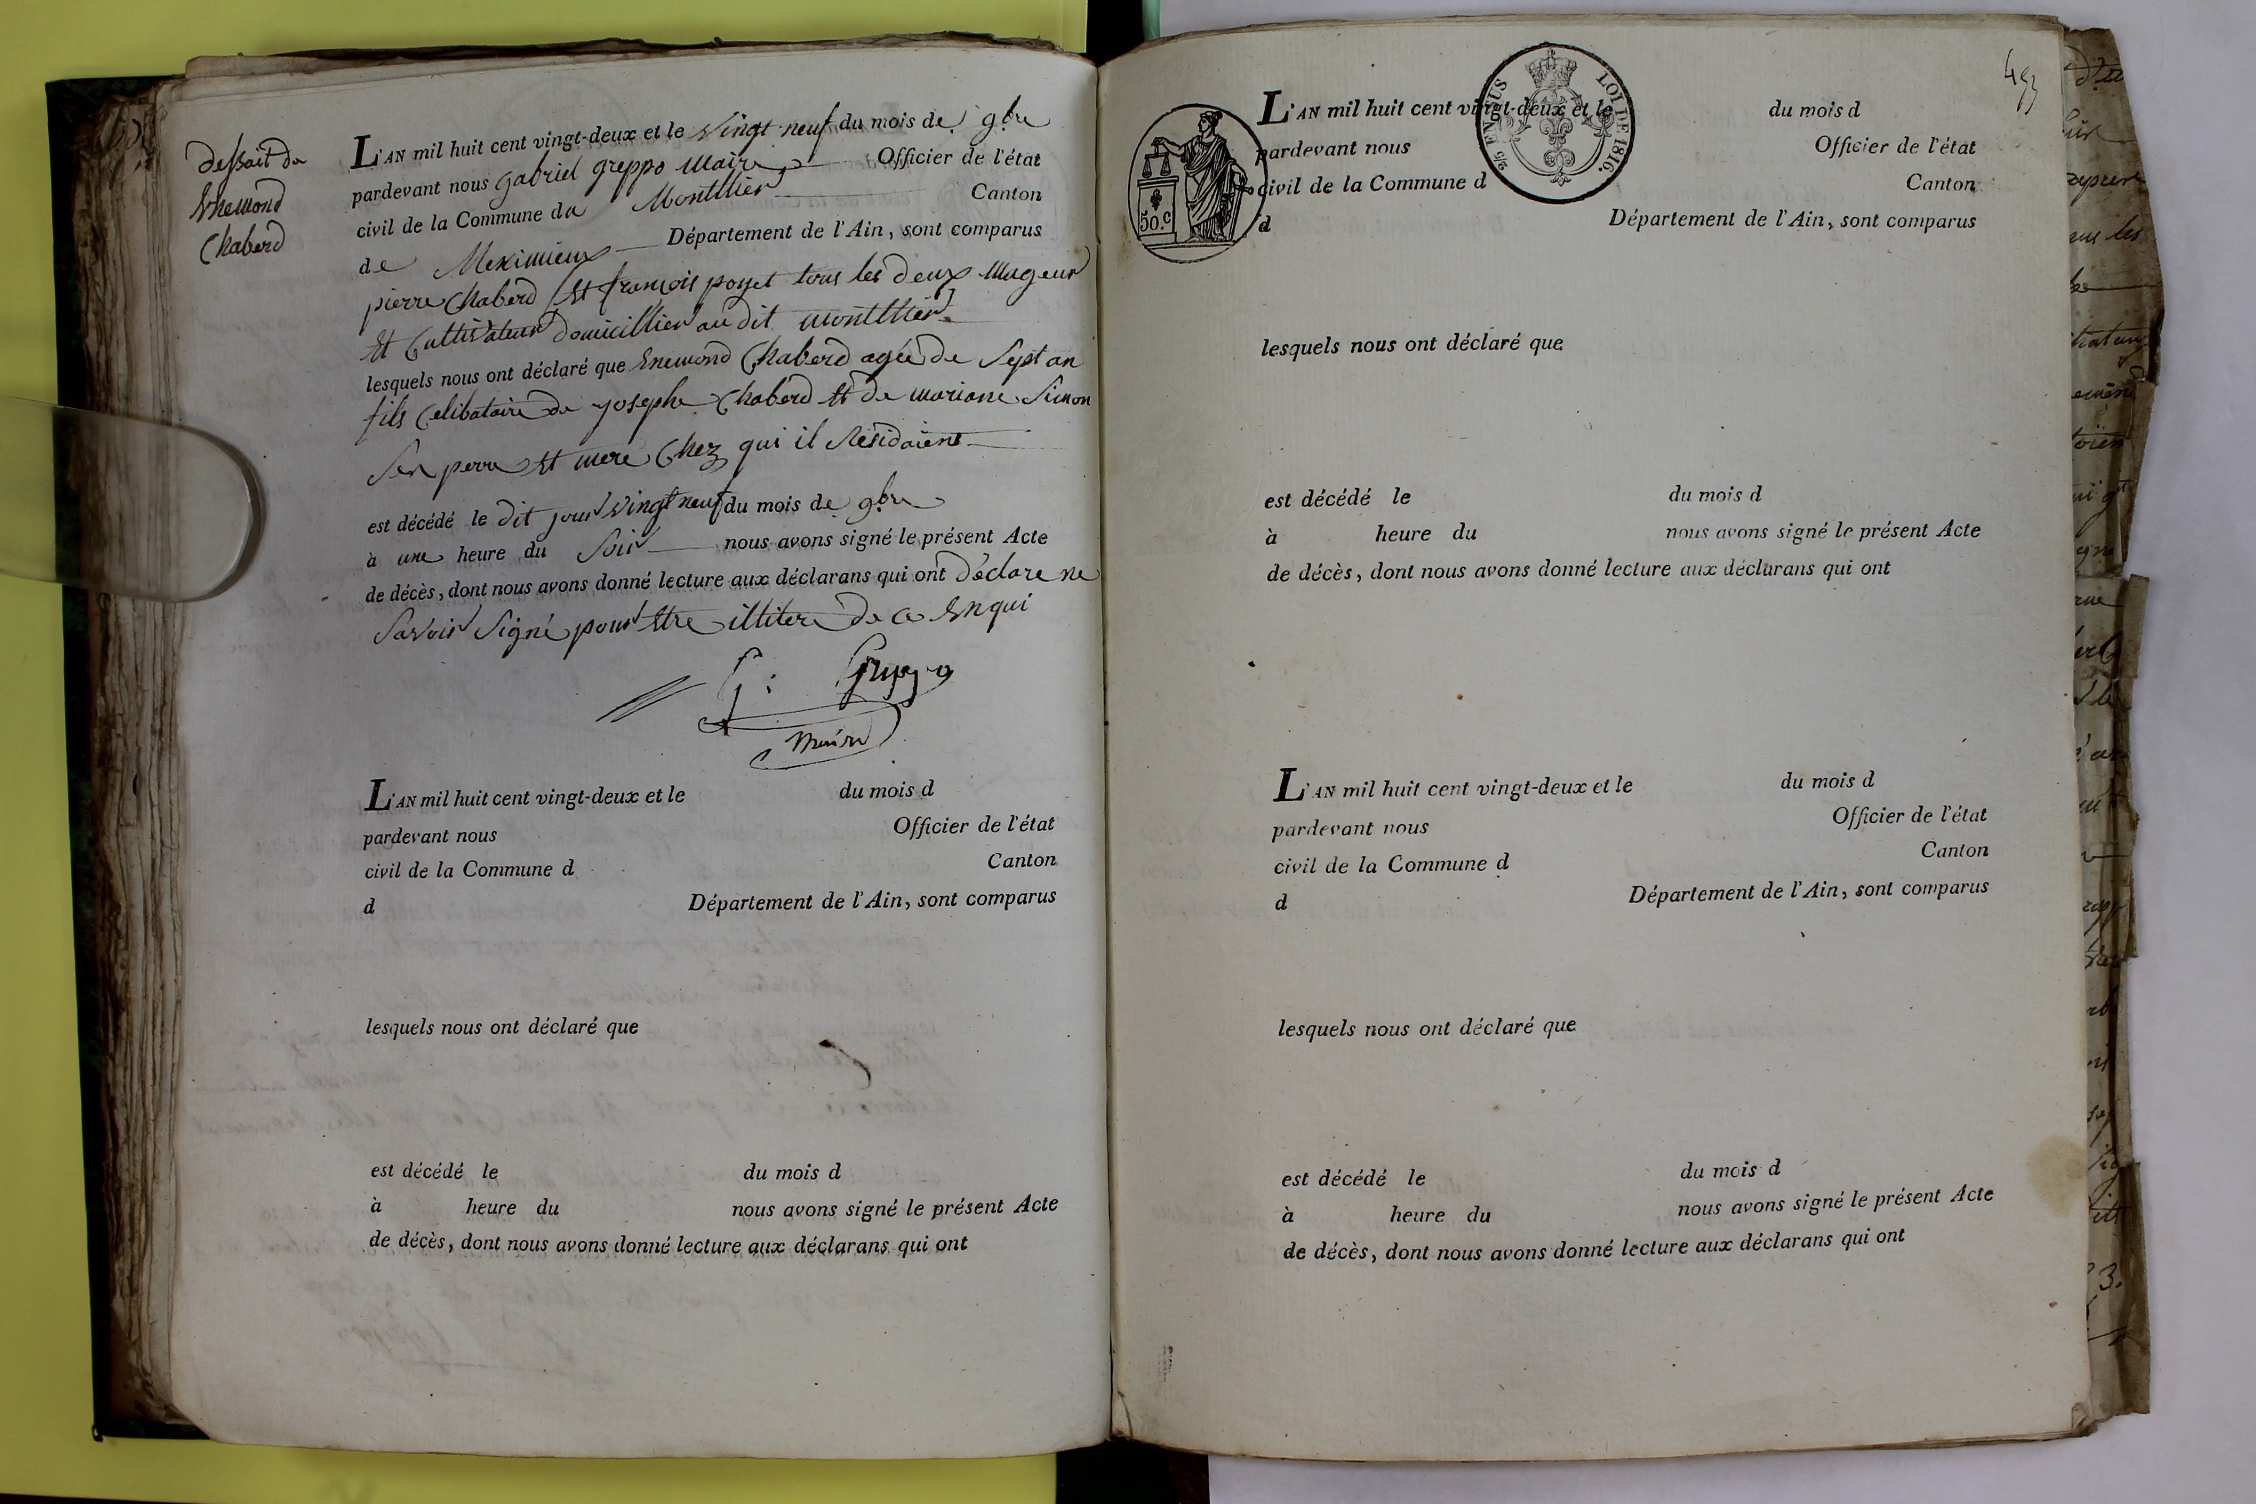 dessait du
Enemond
Chaberd
L'AN mil huit cent vingt-deux et le vingt neuf du mois de 9bre
pardevant nous gabriel greppo Maire Officier de l'état
civil de la Commune du Montllier Canton
de Meximieux Département de l'Ain, sont comparus
pierre Chaberd Et françois poyet tous les deux Mageur
Et Cultivateur domicillier au dit montllier
lesquels nous ont déclaré que Enemond Chaberd agée de Sept an
fils Celibataire de josephe Chaberd Et de mariane Simon
Sen perre Et mere Chez qui il Residaient
est décédé le dit jour vingt neuf du mois de 9bre
à une heure du Soir nous avons signé le présent Acte
de décès, dont nous avons donné lecture aux déclarans qui ont déclare ne
Savoir Signé pour Etre illitere de ce Enqui
G: Greppo
Maire
L'AN mil huit cent vingt-deux et le du mois d
pardevant nous Officier de l'état
civil de la Commune d Canton
d Département de l'Ain, sont comparus
lesquels nous ont déclaré que
est décédé le du mois d
à heure du nous avons signé le présent Acte
de décès, dont nous avons donné lecture aux déclarans qui ont
493
50.c
2/5 EN SUS LOI DE 1816.
L'AN mil huit cent vingt-deux et le du mois d
pardevant nous Officier de l'état
civil de la Commune d Canton
d Département de l'Ain, sont comparus
lesquels nous ont déclaré que
est décédé le du mois d
à heure du nous avons signé le présent Acte
de décès, dont nous avons donné lecture aux déclarans qui ont
L'AN mil huit cent vingt-deux et le du mois d
pardevant nous Officier de l'état
civil de la Commune d Canton
d Département de l'Ain, sont comparus
lesquels nous ont déclaré que
est décédé le du mois d
à heure du nous avons signé le présent Acte
de décès, dont nous avons donné lecture aux déclarans qui ont